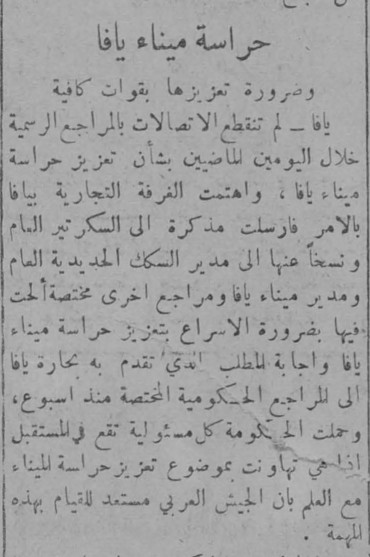 حراسة ميناء يافا
وضرورة تعزيزها بقوات كافية
يافا – لم تنقطع الاتصالات بالمراجع الرسمية
خلال اليومين الماضيين بشأن تعزيز حراسة
ميناء يافا ، واهتمت الغرفة التجارية بيافا
بالامر فارسلت مذكرة الى السكرتير العام
ونسخاً عنها الى مدير السكك الحديدية العام
ومدير ميناء يافا ومراجع اخرى مختصة ألحت
فيها بضرورة الاسراع بتعزيز حراسة ميناء
يافا واجابة المطلب الذي تقدم به بحارة يافا
الى المراجع الحكومية المختصة منذ اسبوع،
وحملت الحكومة كل مسئولية تقع في المستقبل
اذا هي تهاونت بموضوع تعزيز حراسة الميناء
مع العلم بان الجيش العربي مستعد للقيام بهذه
المهمة .